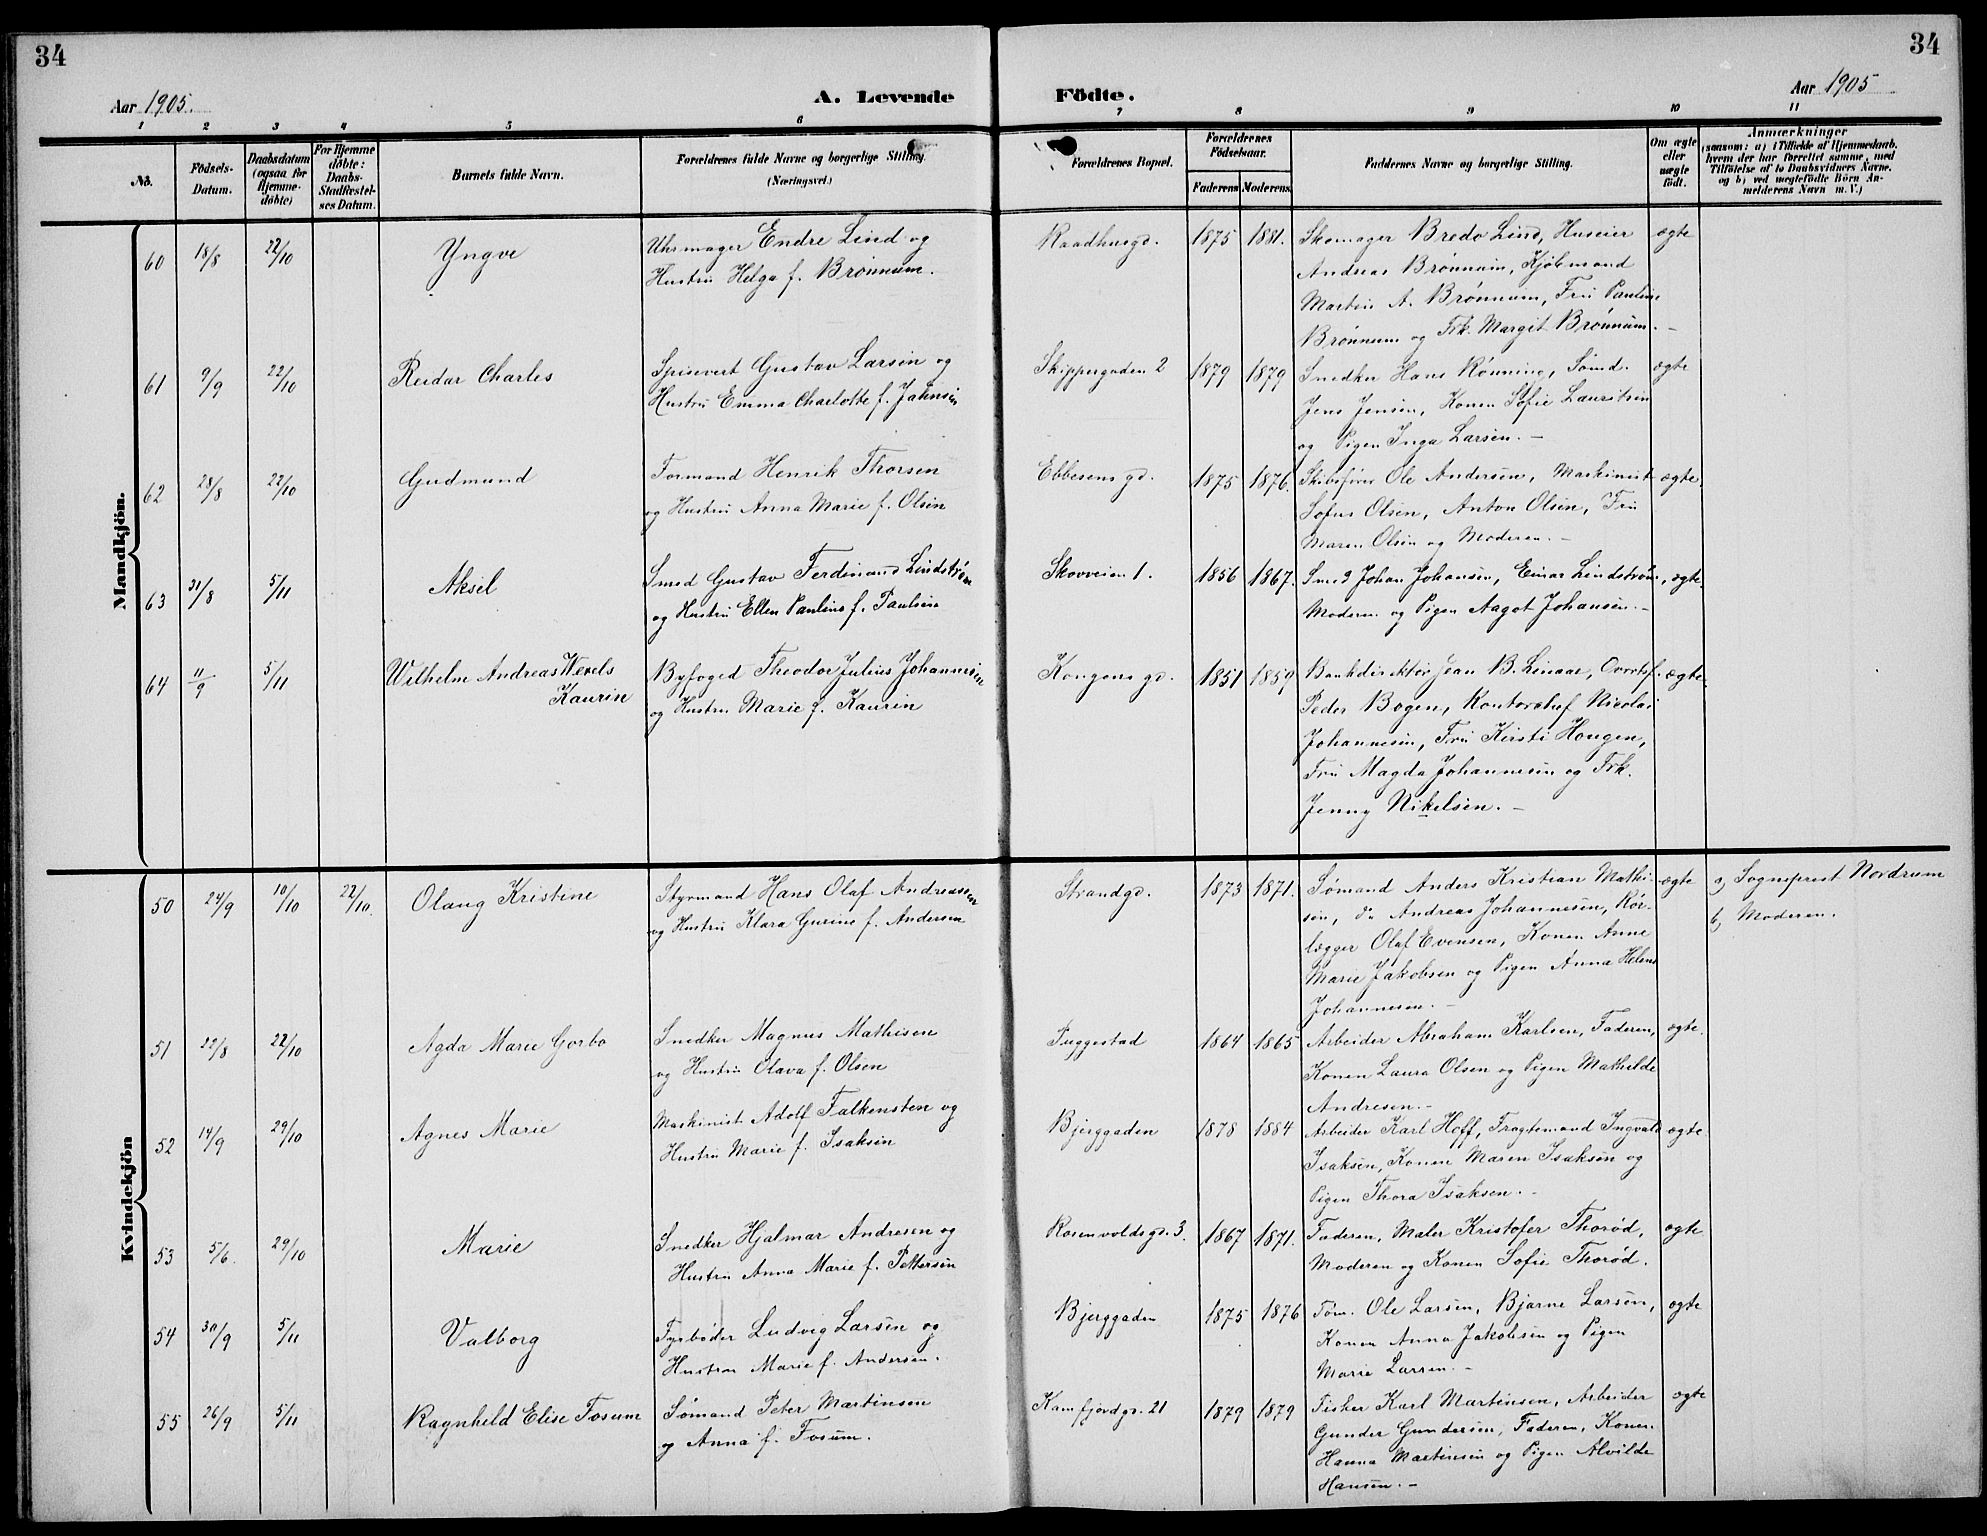 34
34
Aar 1905.
A. Levende
Födte.
Aar 1905
1 2 3 4 5 6 7 8 9 10 11
No.
Födsels-Datum.
Daabsdatum (ogsaa for Hjemme-döbte)
For Hjemme döbte: Daabs-Stadfæstel-ses Datum.
Barnets fulde Navn.
Forældrenes fulde Navne og borgerlige Stilling. (Næringsvei.)
Forældrenes Bopæl.
Forældrenes Födselsaar.
Faderens Moderens
Faddernes Navne og borgerlige Stilling.
Om ægte eller uægte födt.
Anmærkninger
(saasom: a) i Tilfælde af Hjemmedaab, hvem der har forrettet samme, med Tilföielse af to Daabsvidners Navne, og b) ved uægtefödte Börn An-melderens Navn m. V.)
Mandkjön.
60 18/8 22/10 Yngve Uhrmager Endre Lind og Raadhusgd. 1875 1881. Skomager Bredo Lind, Huseier ægte
Hustru Helga f. Brønnum. Andreas Brønnum, Kjøbmand
Martin A. Brønnum, Fru Pauline
Brønnum og Frk. Margit Brønnum.
61 9/9 22/10 Reidar Charles Spisevert Gustav Larsen og Skippergaden 2 1879 1879 Snedker Hans Rønning, Sømd. ægte
Hustru Emma Charlotte f. Jahnsen Jens Jensen, Konen Sofie Lauritsen
og Pigen Inga Larsen.
62 28/8 22/10 Gudmund Formand Henrik Thorsen Ebbesens gd. 1875 1876. Skibsfører Ole Andersen, Maskinist ægte.
og Hustru Anna Marie f. Olsen Sofus Olsen, Anton Olsen, Fru
Maren Olsen og Moderen.
63 31/8 5/11 Aksel Smed Gustav Ferdinand Lindstrøm Skovveien 1. 1856 1867. Smed Johan Johansen, Einar Lindstrøm, ægte.
og Hustru Ellen Pauline f. Paulsen Moderen og Pigen Aagot Johansen.
64 11/9 5/11 Wilhelm Andreas Wexels Byfoged Theodor Julius Johannesen Kongens gd. 1851 1859 Bankdirektør Jean B. Linaae, Overtof. ægte.
Kaurin og Hustru Marie f. Kaurin Peder Bogen, Kontorchef Nicolai
Johannesen, Fru Kirsti Hougen,
Fru Magda Johannesen og Frk.
Jenny Nikelsen.
Kvindekjön
50 24/9 10/10 22/10. Olaug Kristine Styrmand Hans Olaf Andreassen Strandgd. 1873 1871. Sømand Anders Kristian Mathi- ægte a, Sogneprest Nordrum
og Hustru Klara Gurine f. Andersen sen, do Andreas Johannesen, Rør- b, Moderen.
lægger Olaf Evensen, Konen Anne
Marie Jakobsen og Pigen Anna Helene
Johannesen.
51 22/8 22/10 Agda Marie Gorbo Snedker Magnus Mathisen Tuggestad 1864 1865 Arbeider Abraham Karlsen, Faderen, ægte.
og Hustru Olava f. Olsen Konen Laura Olsen og Pigen Mathilde
Andresen.
52 14/9 29/10 Agnes Marie Maskinist Adolf Falkensten og Bjerggaden 1878 1884 Arbeider Karl Hoff, Fragtemand Ingvald ægte
Hustru Marie f. Isaksen Isaksen, Konen Maren Isaksen og
Pigen Thora Isaksen.
53 5/6. 29/10 Marie Snedker Hjalmar Andresen og Rosenvoldsgd. 3. 1867 1871. Faderen, Maler Kristofer Thorød, ægte
Hustru Anna Marie f. Pettersen Moderen og Konen Sofie Thorød.
54 30/9 5/11 Valborg Fyrbøder Ludvig Larsen og Bjerggaden 1875 1876 Tøm. Ole Larsen, Bjarne Larsen, ægte
Hustru Marie f. Andersen. Konen Anna Jakobsen og Pigen
Marie Larsen.
55 26/9 5/11 Ragnhild Elise Fosum Sømand Peter Martinsen Kamfjordgd. 21 1879 1879 Fisker Karl Martinsen, Arbeider ægte
og Anna f. Fosum. Gunder Gundersen, Faderen, Konen
Hanna Martinsen og Pigen Alvilde
Hansen.